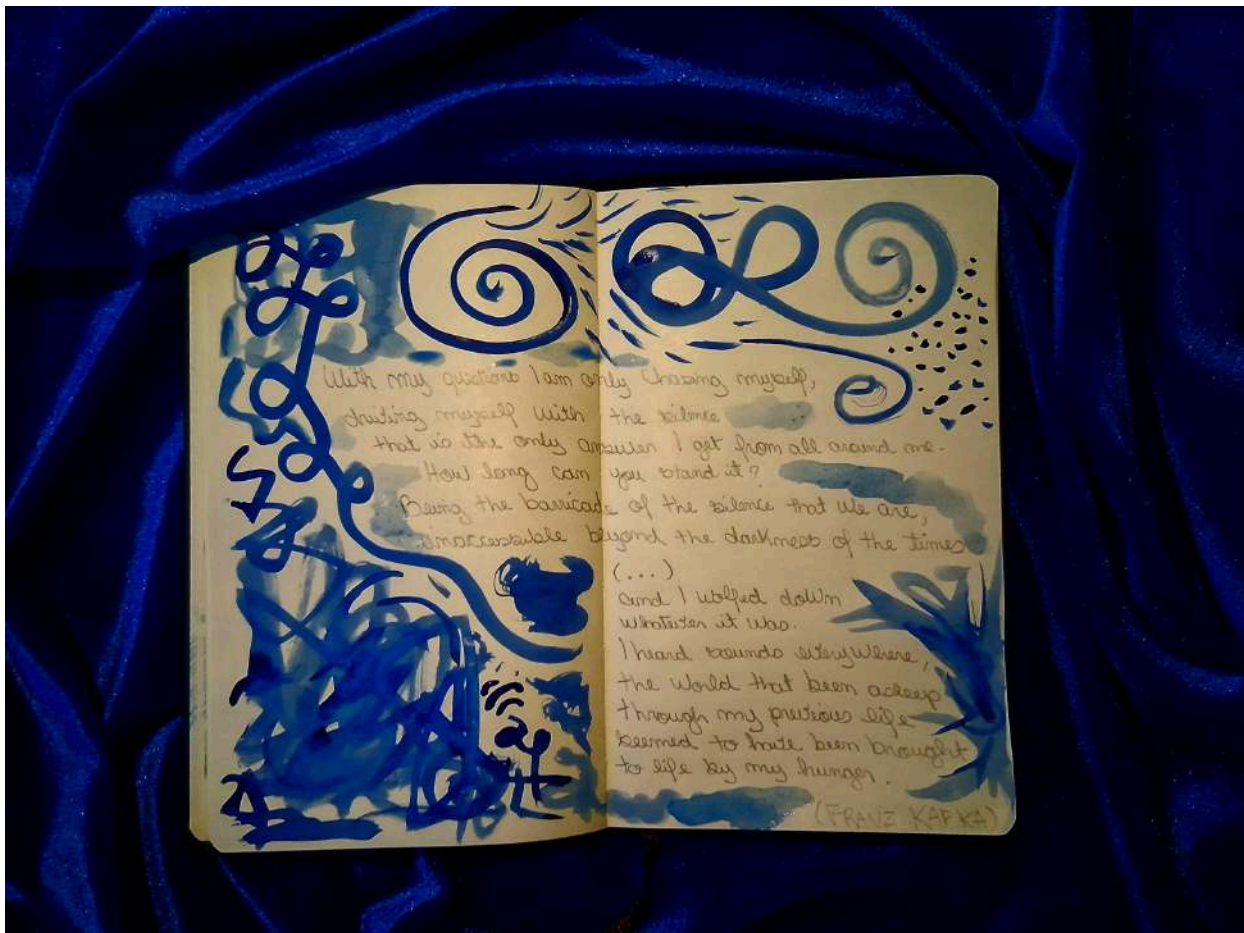 With my questions I am only chasing myself,
uniting myself with the silence
that is the only answer I get from all around me.
How long can you stand it?
Being the barricade of the silence that we are,
inaccessible beyond the darkness of the times
(...)
and I wolfed down
whatever it was.
I heard sounds everywhere,
the world that been asleep
through my previous life
seemed to have been brought
to life by my hunger.
(FRANZ KAFKA)